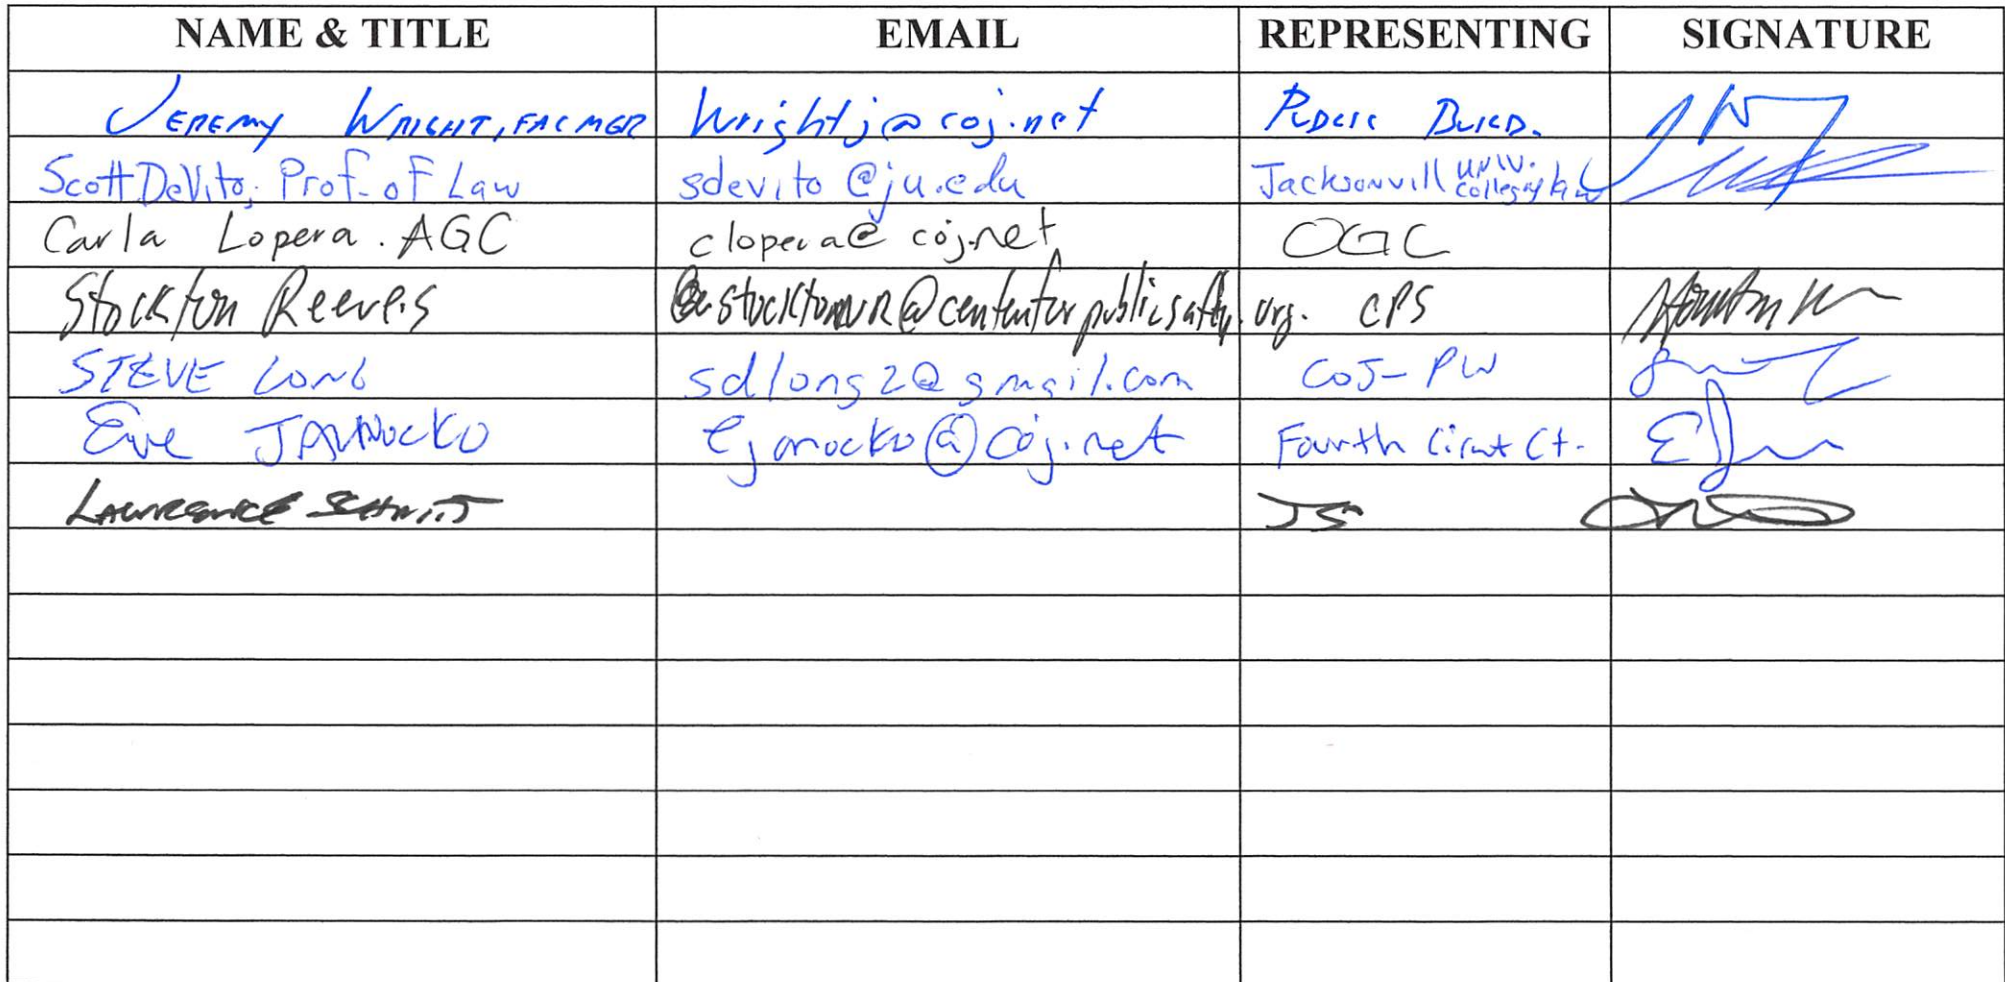 NAME & TITLE EMAIL REPRESENTING SIGNATURE
JEREMY WRIGHT, FAC MGR Wrightj@coj.net PUBLIC BUILD.
Scott DeVito, Prof. of Law sdevito@ju.edu Jacksonvill UNIV. College of Law
Carla Lopera. AGC clopera@coj.net OGC
Stockton Reeves stocktonR@centerforpublicsafety.org. CPS
STEVE LONG sdlong2@gmail.com COJ-PW
Eve JANOCKO ejanocko@coj.net Fourth Circuit Ct.
LAWRENCE